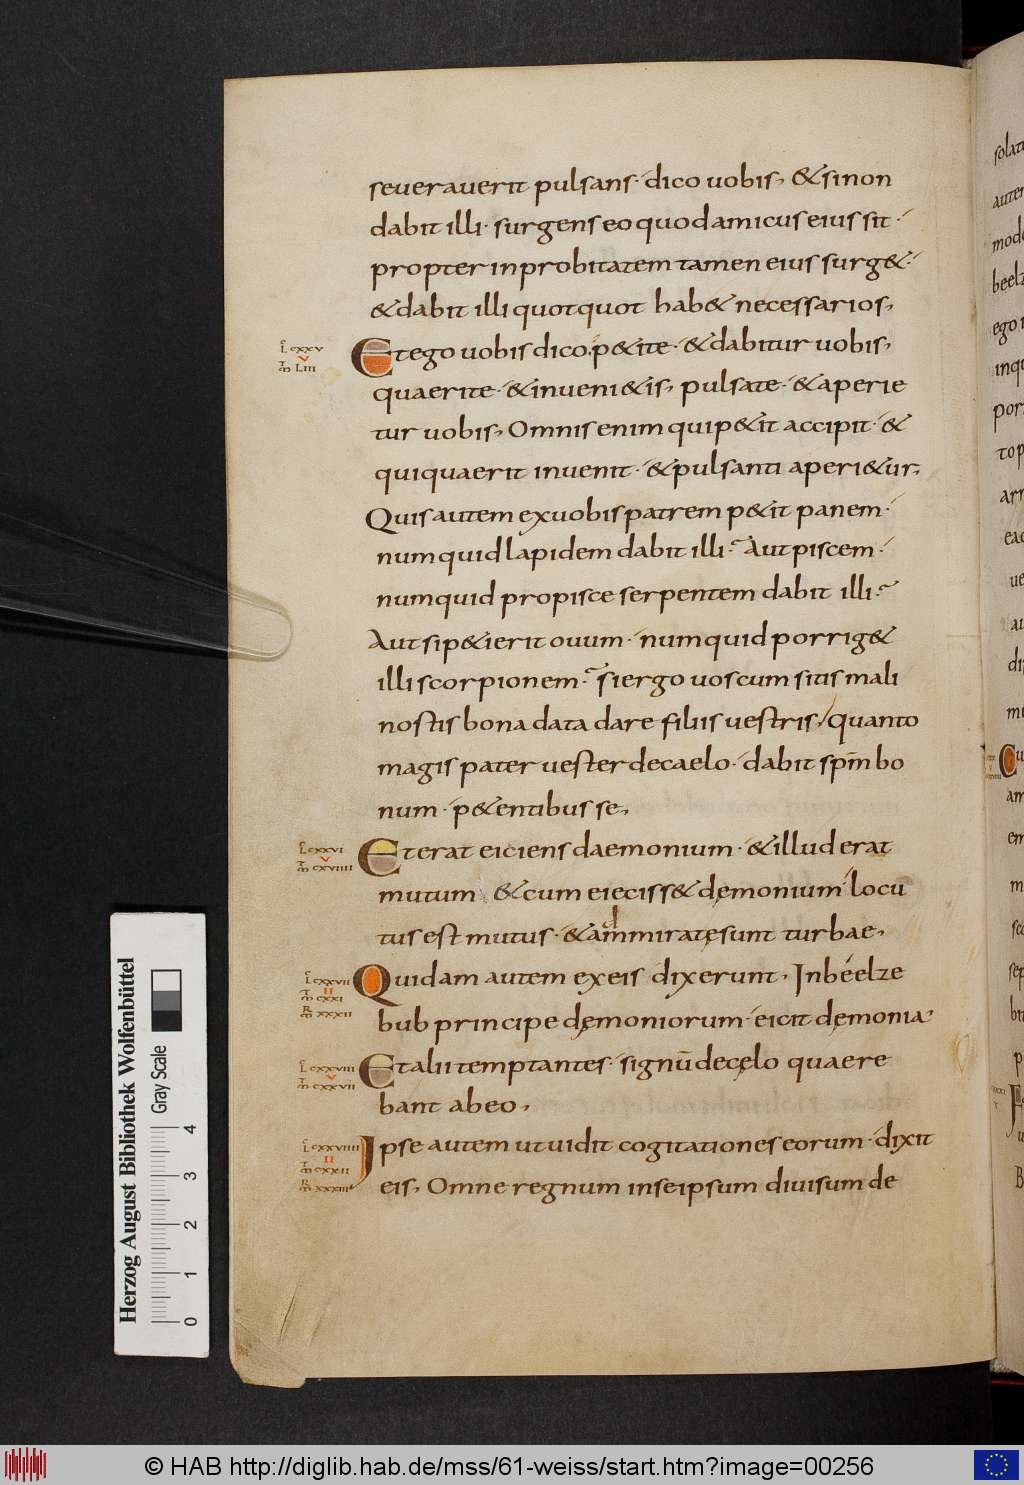 severaverit pulsans· dico vobis, & sinon
dabit illi· surgens eo quod amicus eius sit·
propter inprobitatem tamen eius surg&·
& dabit illi quotquot hab& necessarios,
L CXXV
V
LIII
Et ego vobis dico. p&ite· & dabitur vobis,
quaerite· & inveni&is, pulsate· & aperie
tur vobis, Omnis enim qui p&it accipit· &
qui quaerit invenit· & pulsanti aperi&ur,
Quis autem ex vobis patrem p&it panem·
numquid lapidem dabit illi? Aut piscem·
numquid pro pisce serpentem dabit illi?
Aut si p&ierit ovum· numquid porrig&
illi scorpionem? si ergo vos cum sitis mali
nostis bona data dare filiis vestris, quanto
magis pater vester de caelo· dabit spm bo
num· p&entibus se,
L CXXVI
V
CXVIIII
Et erat eiciens daemonium· & illud erat
mutum & cum eieciss& dęmonium locu
tus est mutus· & admiratę sunt turbae,
L CXXVII
II
CXXI
XXXII
Quidam autem ex eis dixerunt, In béelze
bub principe dęmoniorum· eicit dęmonia
L CXXVIII
V
CXXVII
Et alii temptantes· signū de cęlo quaere
bant ab eo,
L CXXVIIII
II
CXXII
XXXIII
Ipse autem ut vidit cogitationes eorum· dixit
eis, Omne regnum in se ipsum divisum de
Herzog August Bibliothek Wolfenbüttel
Gray Scale
0 1 2 3 4
© HAB http://diglib.hab.de/mss/61-weiss/start.htm?image=00256